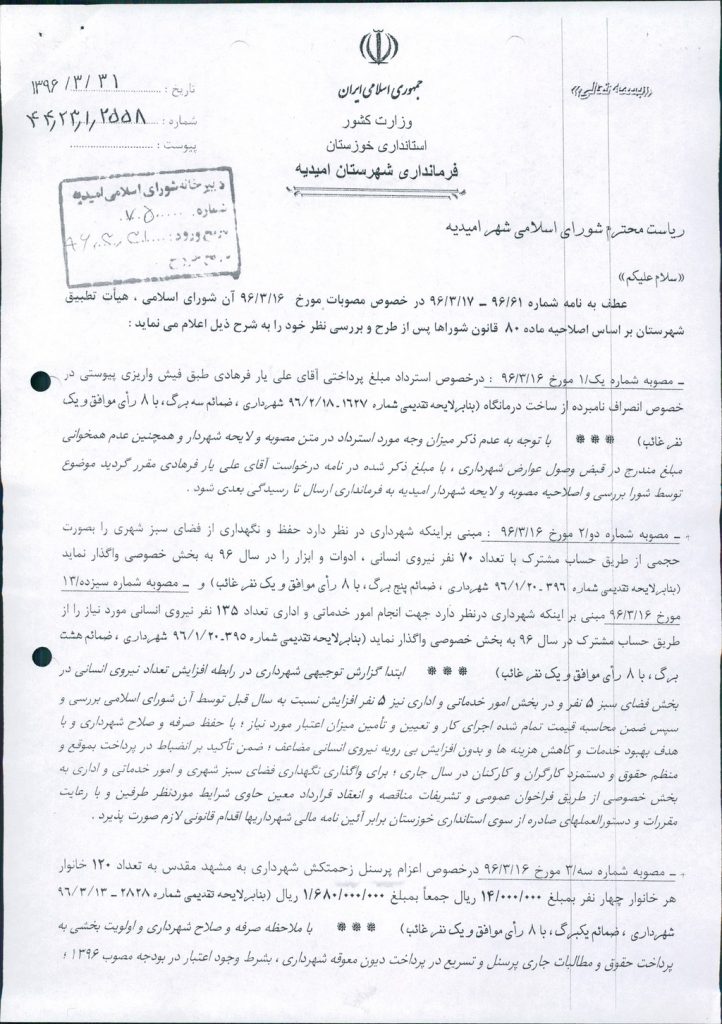 «بسمه تعالی»
جمهوری اسلامی ایران
وزارت کشور
استانداری خوزستان
فرمانداری شهرستان امیدیه
تاریخ : ۱۳۹۶/۳/۳۱
شماره : ۴۴,۲۳,۱,۲۵۵۸
پیوست :
دبیرخانه شورای اسلامی امیدیه
شماره
تاریخ ورود :
ریاست محترم شورای اسلامی شهر امیدیه
«سلام علیکم»
عطف به نامه شماره ۹۶/۶۱ – ۹۶/۳/۱۷ در خصوص مصوبات مورخ ۹۶/۳/۱۶ آن شورای اسلامی ، هیأت تطبیق
شهرستان بر اساس اصلاحیه ماده ۸۰ قانون شوراها پس از طرح و بررسی نظر خود را به شرح ذیل اعلام می نماید :
ـ مصوبه شماره یک/۱ مورخ ۹۶/۳/۱۶ : درخصوص استرداد مبلغ پرداختی آقای علی یار فرهادی طبق فیش واریزی پیوستی در
خصوص انصراف نامبرده از ساخت درمانگاه (بنابرلایحه تقدیمی شماره ۱۶۲۷-۹۶/۲/۱۸ شهرداری ، ضمائم سه برگ، با ۸ رأی موافق و یک
نفر غائب) *** با توجه به عدم ذکر میزان وجه مورد استرداد در متن مصوبه و لایحه شهردار و همچنین عدم همخوانی
مبلغ مندرج در قبض وصول عوارض شهرداری ، با مبلغ ذکر شده در نامه درخواست آقای علی یار فرهادی مقرر گردید موضوع
توسط شورا بررسی و اصلاحیه مصوبه و لایحه شهردار امیدیه به فرمانداری ارسال تا رسیدگی بعدی شود .
ـ مصوبه شماره دو/۲ مورخ ۹۶/۳/۱۶ : مبنی براینکه شهرداری در نظر دارد حفظ و نگهداری از فضای سبز شهری را بصورت
حجمی از طریق حساب مشترک با تعداد ۷۰ نفر نیروی انسانی ، ادوات و ابزار را در سال ۹۶ به بخش خصوصی واگذار نماید
(بنابرلایحه تقدیمی شماره ۳۹۶-۹۶/۱/۲۰ شهرداری ، ضمائم پنج برگ، با ۸ رأی موافق و یک نفر غائب) و ـ مصوبه شماره سیزده/۱۳
مورخ ۹۶/۳/۱۶ مبنی بر اینکه شهرداری درنظر دارد جهت انجام امور خدماتی و اداری تعداد ۱۳۵ نفر نیروی انسانی مورد نیاز را از
طریق حساب مشترک در سال ۹۶ به بخش خصوصی واگذار نماید (بنابرلایحه تقدیمی شماره ۳۹۵-۹۶/۱/۲۰ شهرداری ، ضمائم هشت
برگ، با ۸ رأی موافق و یک نفر غائب) *** ابتدا گزارش توجیهی شهرداری در رابطه افزایش تعداد نیروی انسانی در
بخش فضای سبز ۵ نفر و در بخش امور خدماتی و اداری نیز ۵ نفر افزایش نسبت به سال قبل توسط آن شورای اسلامی بررسی و
سپس ضمن محاسبه قیمت تمام شده اجرای کار و تعیین و تأمین میزان اعتبار مورد نیاز ؛ با حفظ صرفه و صلاح شهرداری و با
هدف بهبود خدمات و کاهش هزینه ها و بدون افزایش بی رویه نیروی انسانی مضاعف ؛ ضمن تأکید بر انضباط در پرداخت بموقع و
منظم حقوق و دستمزد کارگران و کارکنان در سال جاری ؛ برای واگذاری نگهداری فضای سبز شهری و امور خدماتی و اداری به
بخش خصوصی از طریق فراخوان عمومی و تشریفات مناقصه و انعقاد قرارداد معین حاوی شرایط موردنظر طرفین و با رعایت
مقررات و دستورالعملهای صادره از سوی استانداری خوزستان برابر آئین نامه مالی شهرداریها اقدام قانونی لازم صورت پذیرد .
ـ مصوبه شماره سه/۳ مورخ ۹۶/۳/۱۶ درخصوص اعزام پرسنل زحمتکش شهرداری به مشهد مقدس به تعداد ۱۲۰ خانوار
هر خانوار چهار نفر بمبلغ ۱۴/۰۰۰/۰۰۰ ریال جمعاً بمبلغ ۱/۶۸۰/۰۰۰/۰۰۰ ریال (بنابرلایحه تقدیمی شماره ۲۸۲۸ - ۹۶/۳/۱۳
شهرداری ، ضمائم یکبرگ، با ۸ رأی موافق و یک نفر غائب) *** با ملاحظه صرفه و صلاح شهرداری و اولویت بخشی به
پرداخت حقوق و مطالبات جاری پرسنل و تسریع در پرداخت دیون معوقه شهرداری ، بشرط وجود اعتبار در بودجه مصوب ۱۳۹۶ ؛